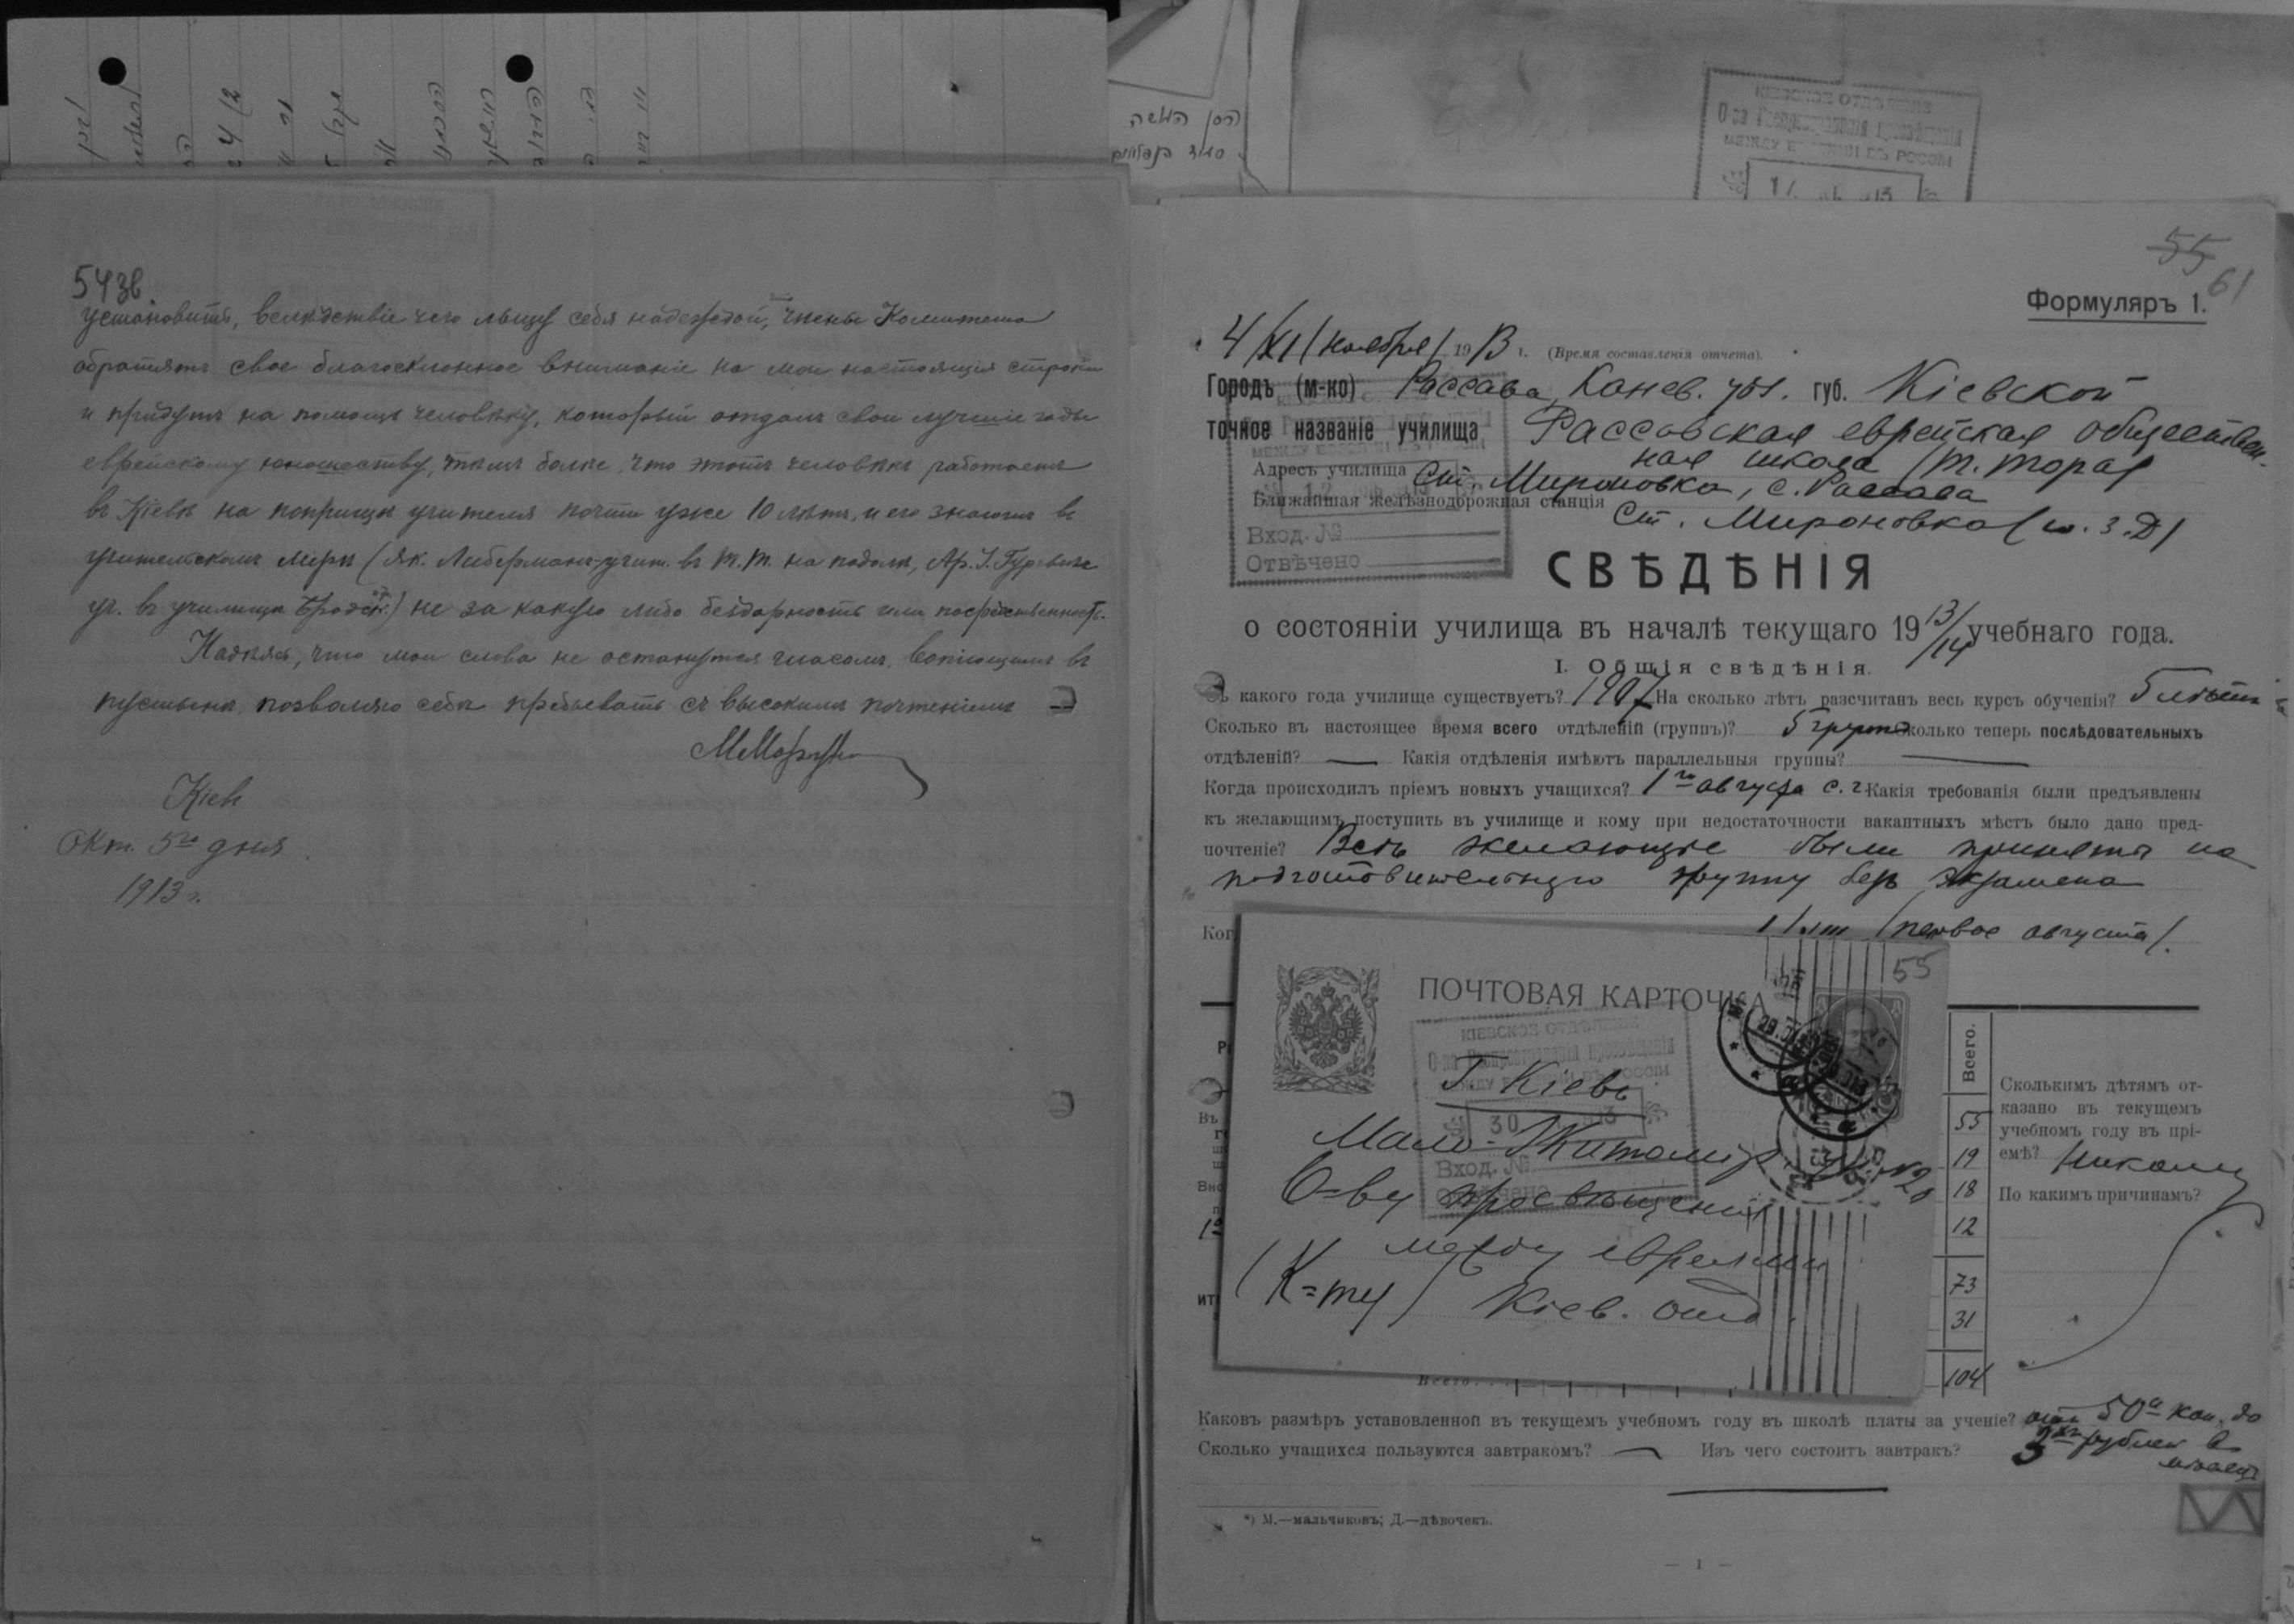 54 зв
установить, вслѣдствіе чего льщу себя надеждой, члены Комитета
обратятъ свое благосклонное вниманіе на мои настоящія строки
и придутъ на помощь человѣку, который отдалъ свои лучшіе годы
еврейскому юношеству, тѣмъ болѣе, что этотъ человѣкъ работаетъ
въ Кіевѣ на поприщѣ учителя почти уже 10 лѣтъ, и его знаютъ въ
учительскомъ мірѣ (Як. Либерманъ, учит. въ Т.Т. на подолѣ, Ар. І. Гуревичъ
уч. въ училищѣ Бродск.) не за какую либо бездарность или посредственность.
Надѣясь, что мои слова не останутся гласомъ вопіющимъ въ
пустынѣ, позволяю себѣ пребывать съ высокимъ почтеніемъ
Кіевъ
Окт. 5го дня
1913 г.
КІЕВСКОЕ ОТДѢЛЕНІЕ
О-ва Распространенія Просвѣщенія
МЕЖДУ ЕВРЕЯМИ ВЪ РОССІИ
55
61
Формуляръ 1.
4/XI (ноября) 1913 г. (Время составленія отчета).
Городъ (м-ко) Россава, Канев. уѣз. губ. Кіевской
точное названіе училища Россавская еврейская обществен-
ная школа (Т. Тора)
Адресъ училища Ст. Мироновка, с. Россава
Ближайшая желѣзнодорожная станція Ст. Мироновка (ю. з. д)
Вход. №
Отвѣчено
СВѢДѢНІЯ
о состояніи училища въ началѣ текущаго 1913/14 учебнаго года.
I. Общія свѣдѣнія.
Съ какого года училище существуетъ? 1907 На сколько лѣтъ разсчитанъ весь курсъ обученія? 5 лѣтъ
Сколько въ настоящее время всего отдѣленій (группъ)? 5 группъ Сколько теперь послѣдовательныхъ
отдѣленій? — Какія отдѣленія имѣютъ параллельныя группы? —
Когда происходилъ пріемъ новыхъ учащихся? 1го августа с. г. Какія требованія были предъявлены
къ желающимъ поступить въ училище и кому при недостаточности вакантныхъ мѣстъ было дано пред-
почтеніе? Всѣ желающіе были приняты на
подготовительную группу безъ экзамена
Ког
1/VIII (первое августа).
55
ПОЧТОВАЯ КАРТОЧКА
КІЕВСКОЕ ОТДѢЛЕНІЕ
О-ва Распространенія Просвѣщенія
МЕЖДУ ЕВРЕЯМИ ВЪ РОССІИ
30
Вход. №
Отвѣчено
Г. Кіевъ
Мало-Житомір. № 20
О-ву просвѣщенія
между евреями
(К-ту) Кіев. отд.
Всего.
55
19
18
12
73
31
104
Сколькимъ дѣтямъ от-
казано въ текущемъ
учебномъ году въ прі-
емѣ? Никому
По какимъ причинамъ?
Всего
Каковъ размѣръ установленной въ текущемъ учебномъ году въ школѣ платы за ученіе? отъ 50и коп. до
3хъ рублей въ
мѣсяцъ
Сколько учащихся пользуются завтракомъ? — Изъ чего состоитъ завтракъ?
*) М.—мальчиковъ; Д.—дѣвочекъ.
— 1 —